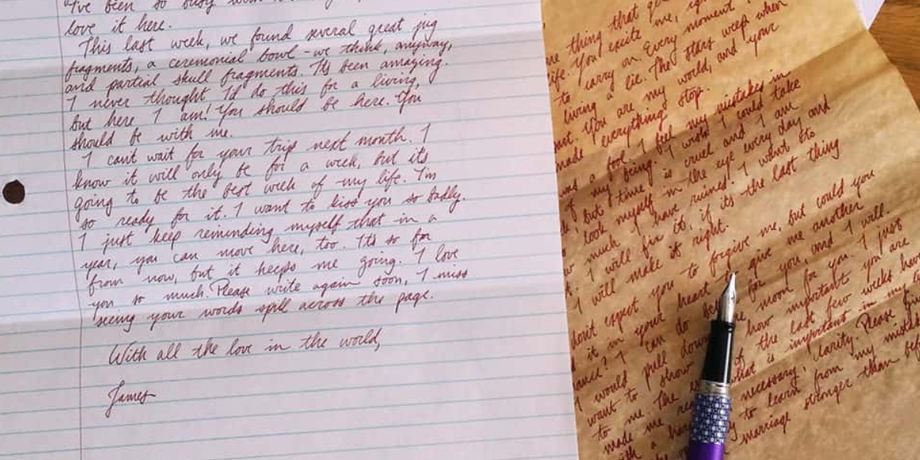 love it here.
This last week, we found several great jug
fragments, a ceremonial bowl - we think, anyway,
and partial skull fragments. Its been amazing.
I never thought I'd do this for a living,
but here I am! You should be here. You
should be with me.
I cant wait for your trip next month. I
know it will only be for a week, but its
going to be the best week of my life. I'm
so ready for it. I want to kiss you so badly.
I just keep reminding myself that in a
year, you can move here, too. Its so far
from now, but it helps me going. I love
you so much. Please write again soon, I miss
seeing your words spill across the page.
With all the love in the world,
James
me thing that
life. You excite me,
to carry on. Every moment
living a lie. The stars weep when
You are my world, and your
made everything stop.
a fool. I feel my mistakes in
my being. I wish I could take
but time is cruel and I am
look myself in the eye every day and
much I have ruined. I want to
I will fix it, if it's the last thing
I will make it right.
dont expect you to forgive me, but could you
it in your heart to give me another
I can do for you, and I will
would pull down the moon for you. I just
want to how important you are
to me. The the last few weeks have
made me is important in my
a necessary, clarity. Please
to learn from my
marriage stronger than